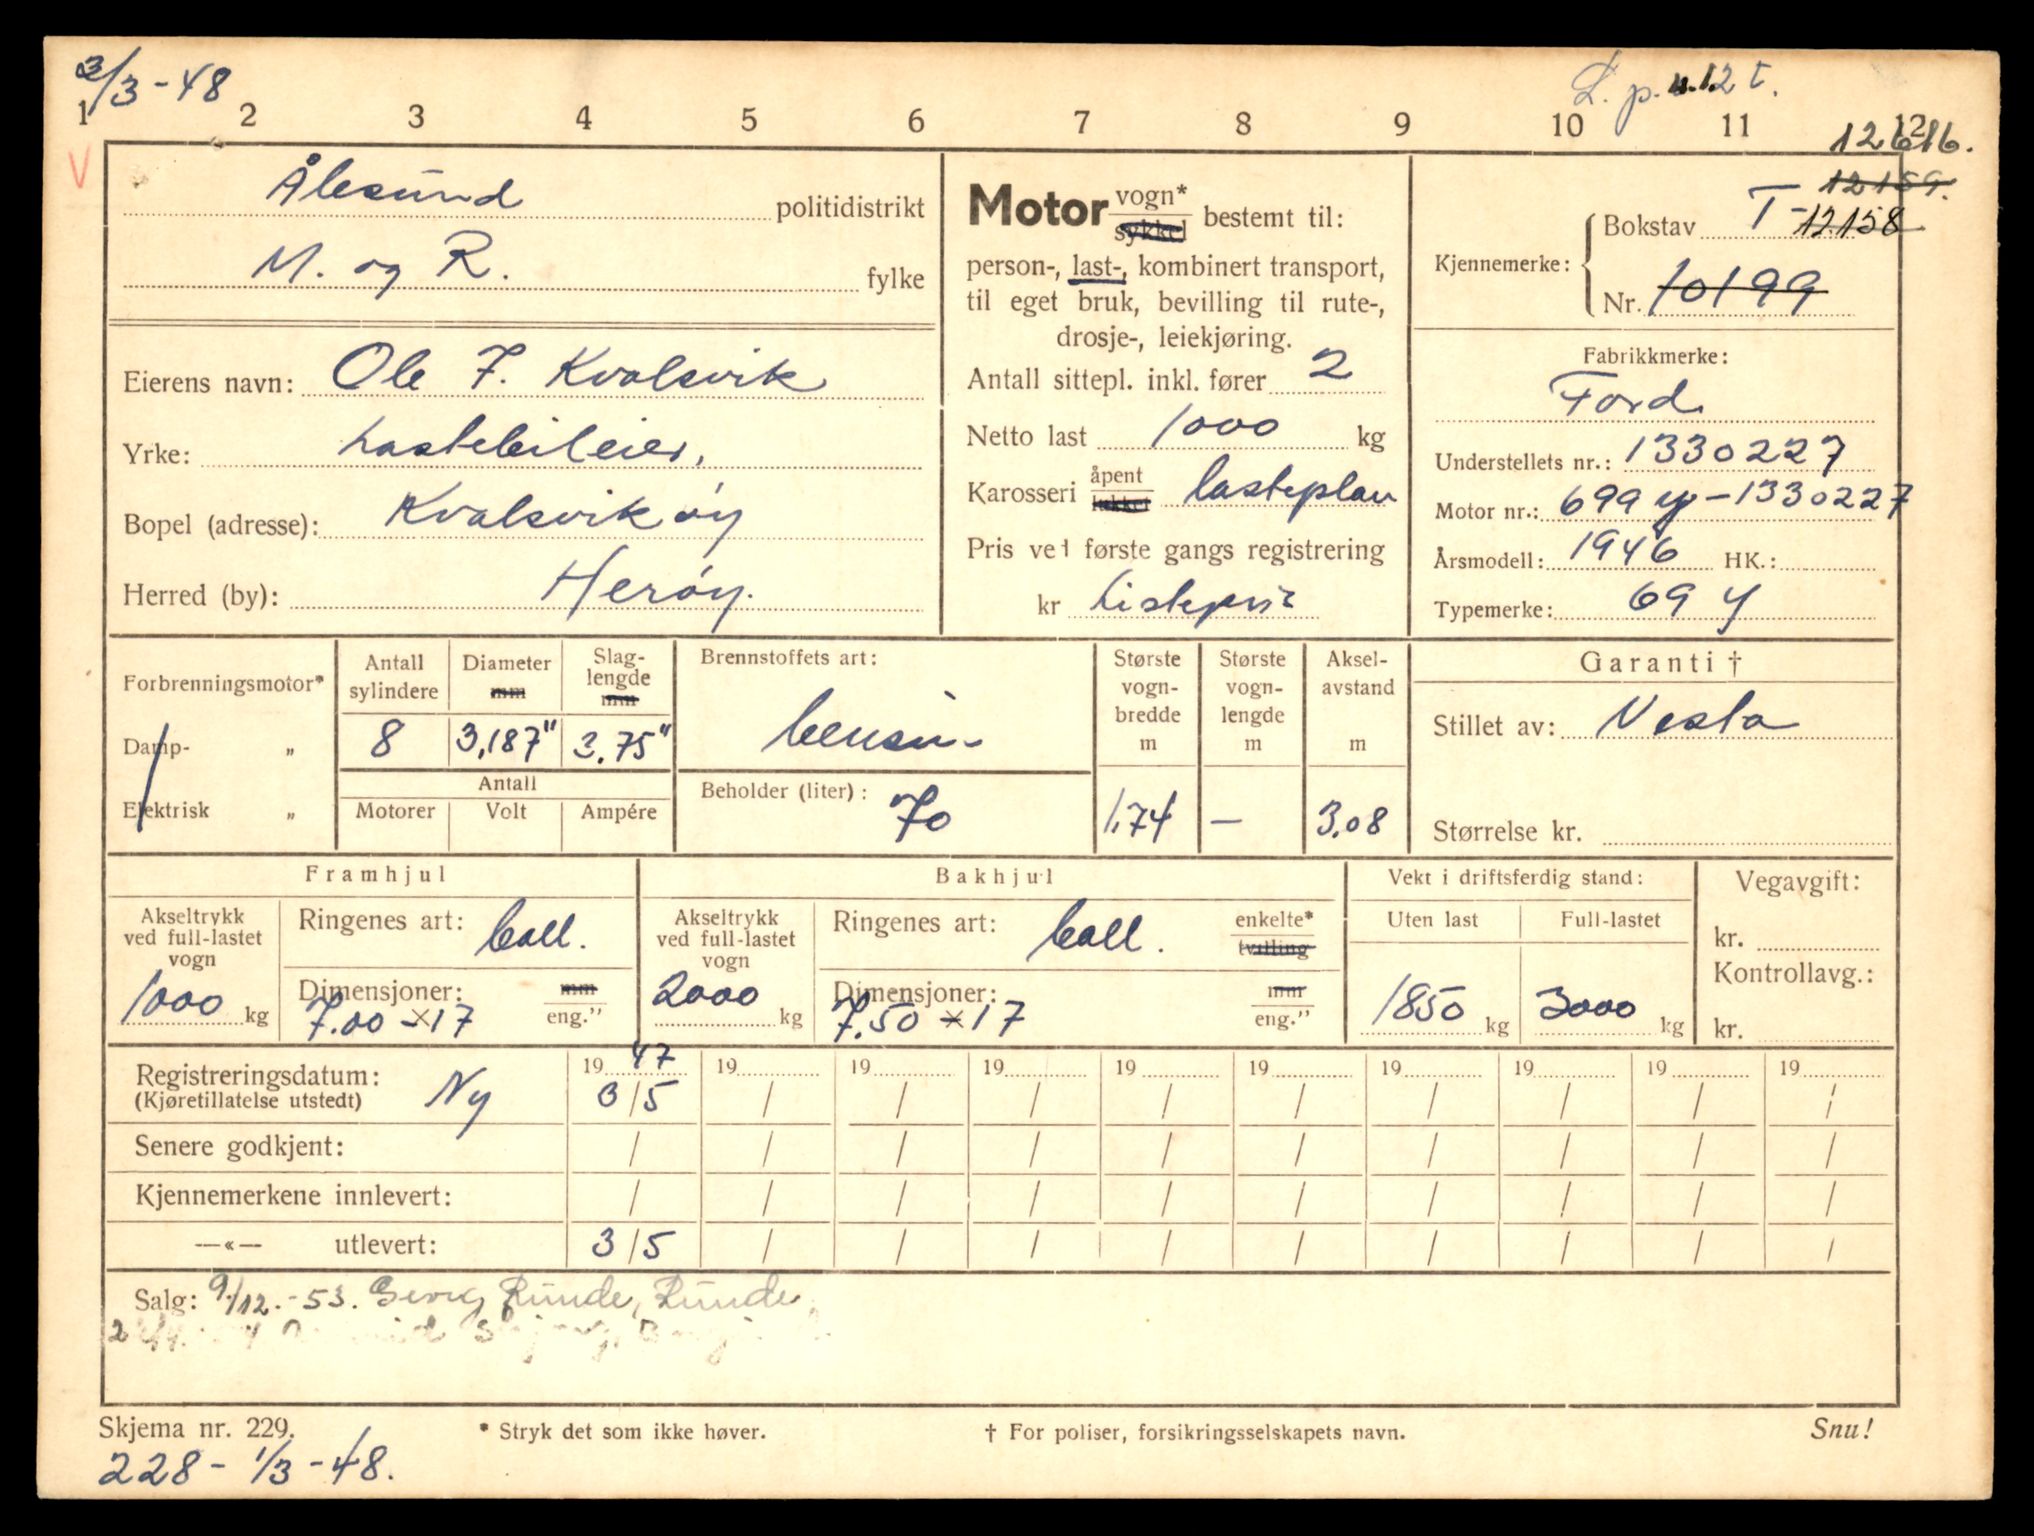 3/3-48
L. p. u. 12 t.
1 2 3 4 5 6 7 8 9 10 11 12
12616.
V
Ålesund politidistrikt
M. og R. fylke
Eierens navn: Ole J. Kvalsvik
Yrke: Lastebileier,
Bopel (adresse): Kvalsvikøy
Herred (by): Herøy.
Motor vogn* sykkel bestemt til:
person-, last-, kombinert transport,
til eget bruk, bevilling til rute-,
drosje-, leiekjøring.
Antall sittepl. inkl. fører 2
Netto last 1000 kg
Karosseri åpent lukket lasteplan
Pris ved første gangs registrering
kr Listepris
12159.
Kjennemerke: Bokstav T-12158
Nr. 10199
Fabrikkmerke:
Ford
Understellets nr.: 1330227
Motor nr.: 699 y-1330227
Årsmodell: 1946 HK.:
Typemerke: 69 y
Forbrenningsmotor*
Damp- „
Elektrisk „
Antall sylindere
Diameter mm
Slaglengde mm
8 3,187" 3.75"
Antall
Motorer Volt Ampére
Brennstoffets art:
bensin
Beholder (liter): 70
Største vognbredde m
1,74
Største vognlengde m
—
Akselavstand m
3.08
Garanti †
Stillet av: Vesta
Størrelse kr.
Framhjul
Akseltrykk
ved full-lastet
vogn
1000 kg
Ringenes art: ball.
Dimensjoner: mm
7.00 x 17 eng."
Bakhjul
Akseltrykk
ved full-lastet
vogn
2000 kg
Ringenes art: ball. enkelte* tvilling
Dimensjoner: mm
7.50 x 17 eng."
Vekt i driftsferdig stand:
Uten last Full-lastet
1850 kg 3000 kg
Vegavgift:
kr.
Kontrollavg.:
kr.
Registreringsdatum: Ny 19 47 19 19 19 19 19 19 19 19 19
(Kjøretillatelse utstedt) 3/5 / / / / / / / / /
Senere godkjent: / / / / / / / / / /
Kjennemerkene innlevert: / / / / / / / / / /
—«— utlevert: 3/5 / / / / / / / / /
Salg: 9/12.-53. Georg Runde, Runde,
Skjema nr. 229.
* Stryk det som ikke høver.
† For poliser, forsikringsselskapets navn.
Snu!
228 - 1/3-48.